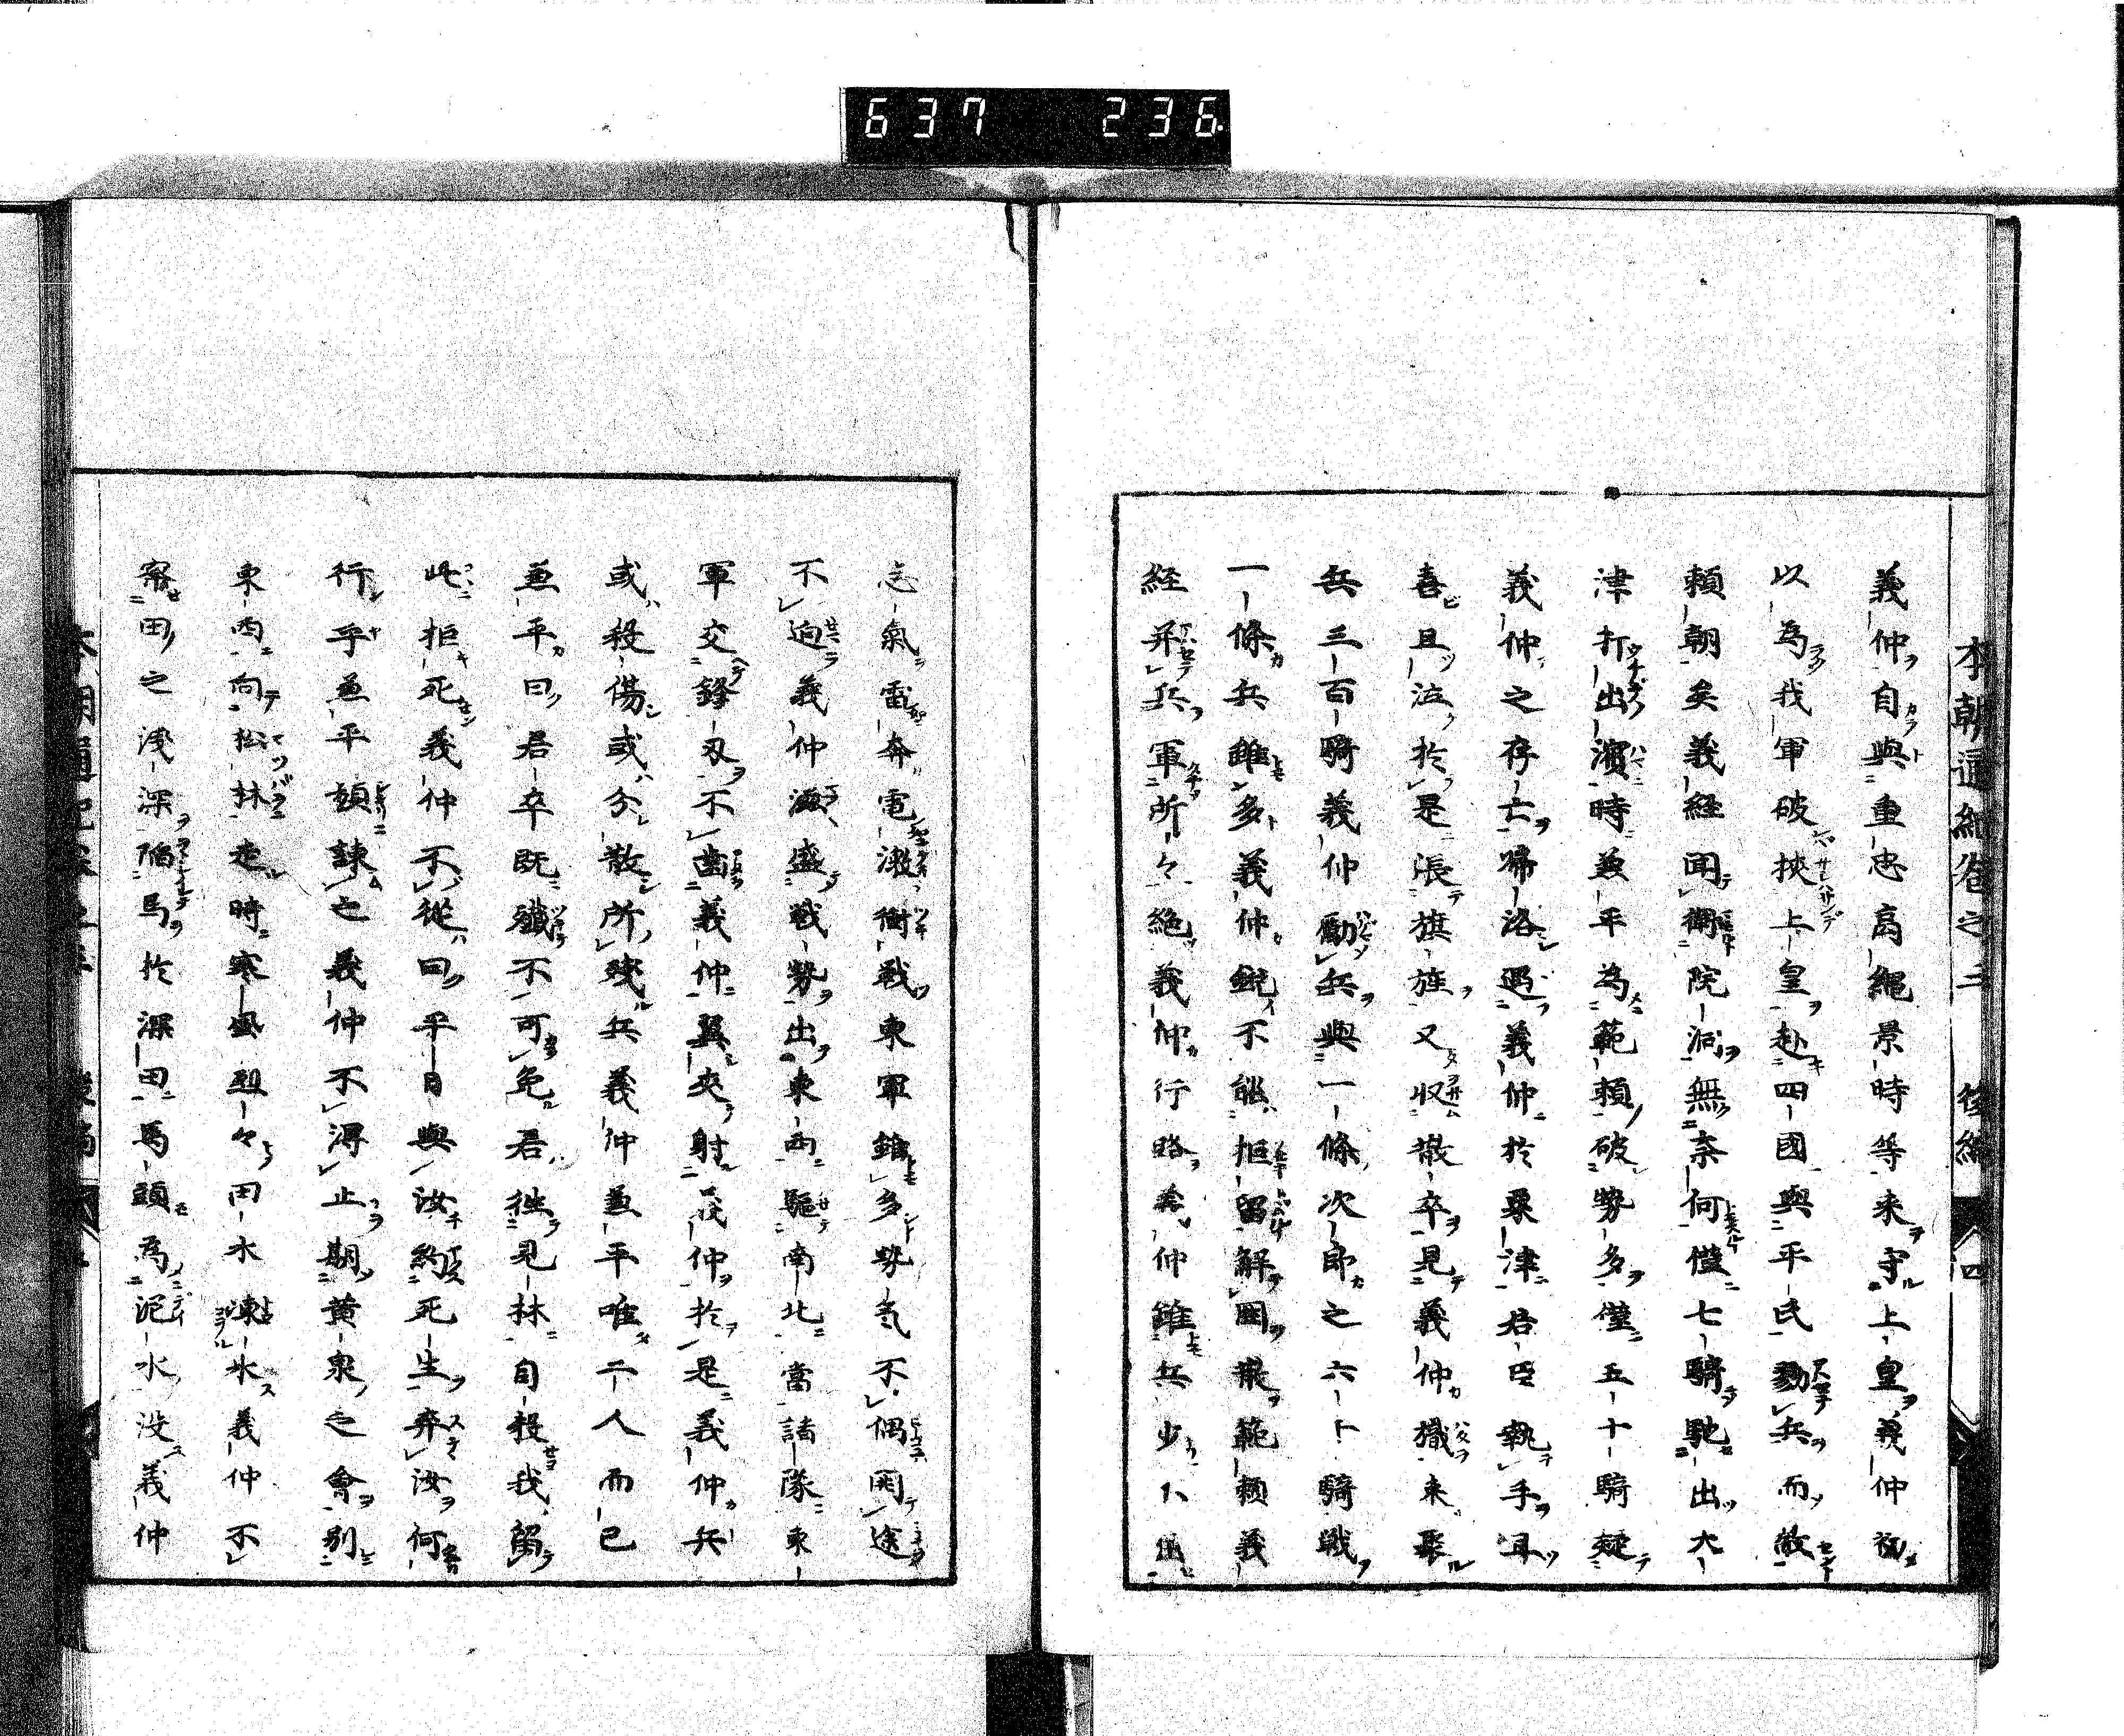 637 236
本朝通紀巻之二 後編 四
義仲自與重忠高縄景時等来守上皇義仲初
以為我軍破挾上皇赴四國與平氏勠兵而敵
頼朝矣義経聞衛院洞無奈何僅七騎馳出大
津打出濱時兼平為範頼破勢多僅五十騎疑
義仲之存亡帰洛遇義仲於粟津君臣執手且
喜且泣於是張旗旌又収散卒見義仲幟来聚
兵三百騎義仲勵兵與一條次郎之六千騎戦
一條兵雖多義仲鋭不能拒留解圍撥範頼義
経并兵軍所々絶義仲行路義仲雖兵少人
志氣雷奔電激衝戦東軍雖多勢気不偶関途
不迫義仲激盛戦勢出東西駆南北當諸隊東
軍交鋒刃不歯義仲翼夾射義仲於是義仲兵
或殺傷或分散所残兵義仲兼平唯二人而已
兼平曰君卒既殲不可免君往見林自殺我留
此拒死義仲不従曰平日與汝約死生棄汝何
行乎兼平頻諌之義仲不得止期黄泉之會別
東西向松林走時寒風烈々田水凍氷義仲不
察田之浅深陥馬於深田馬頭為泥水没義仲